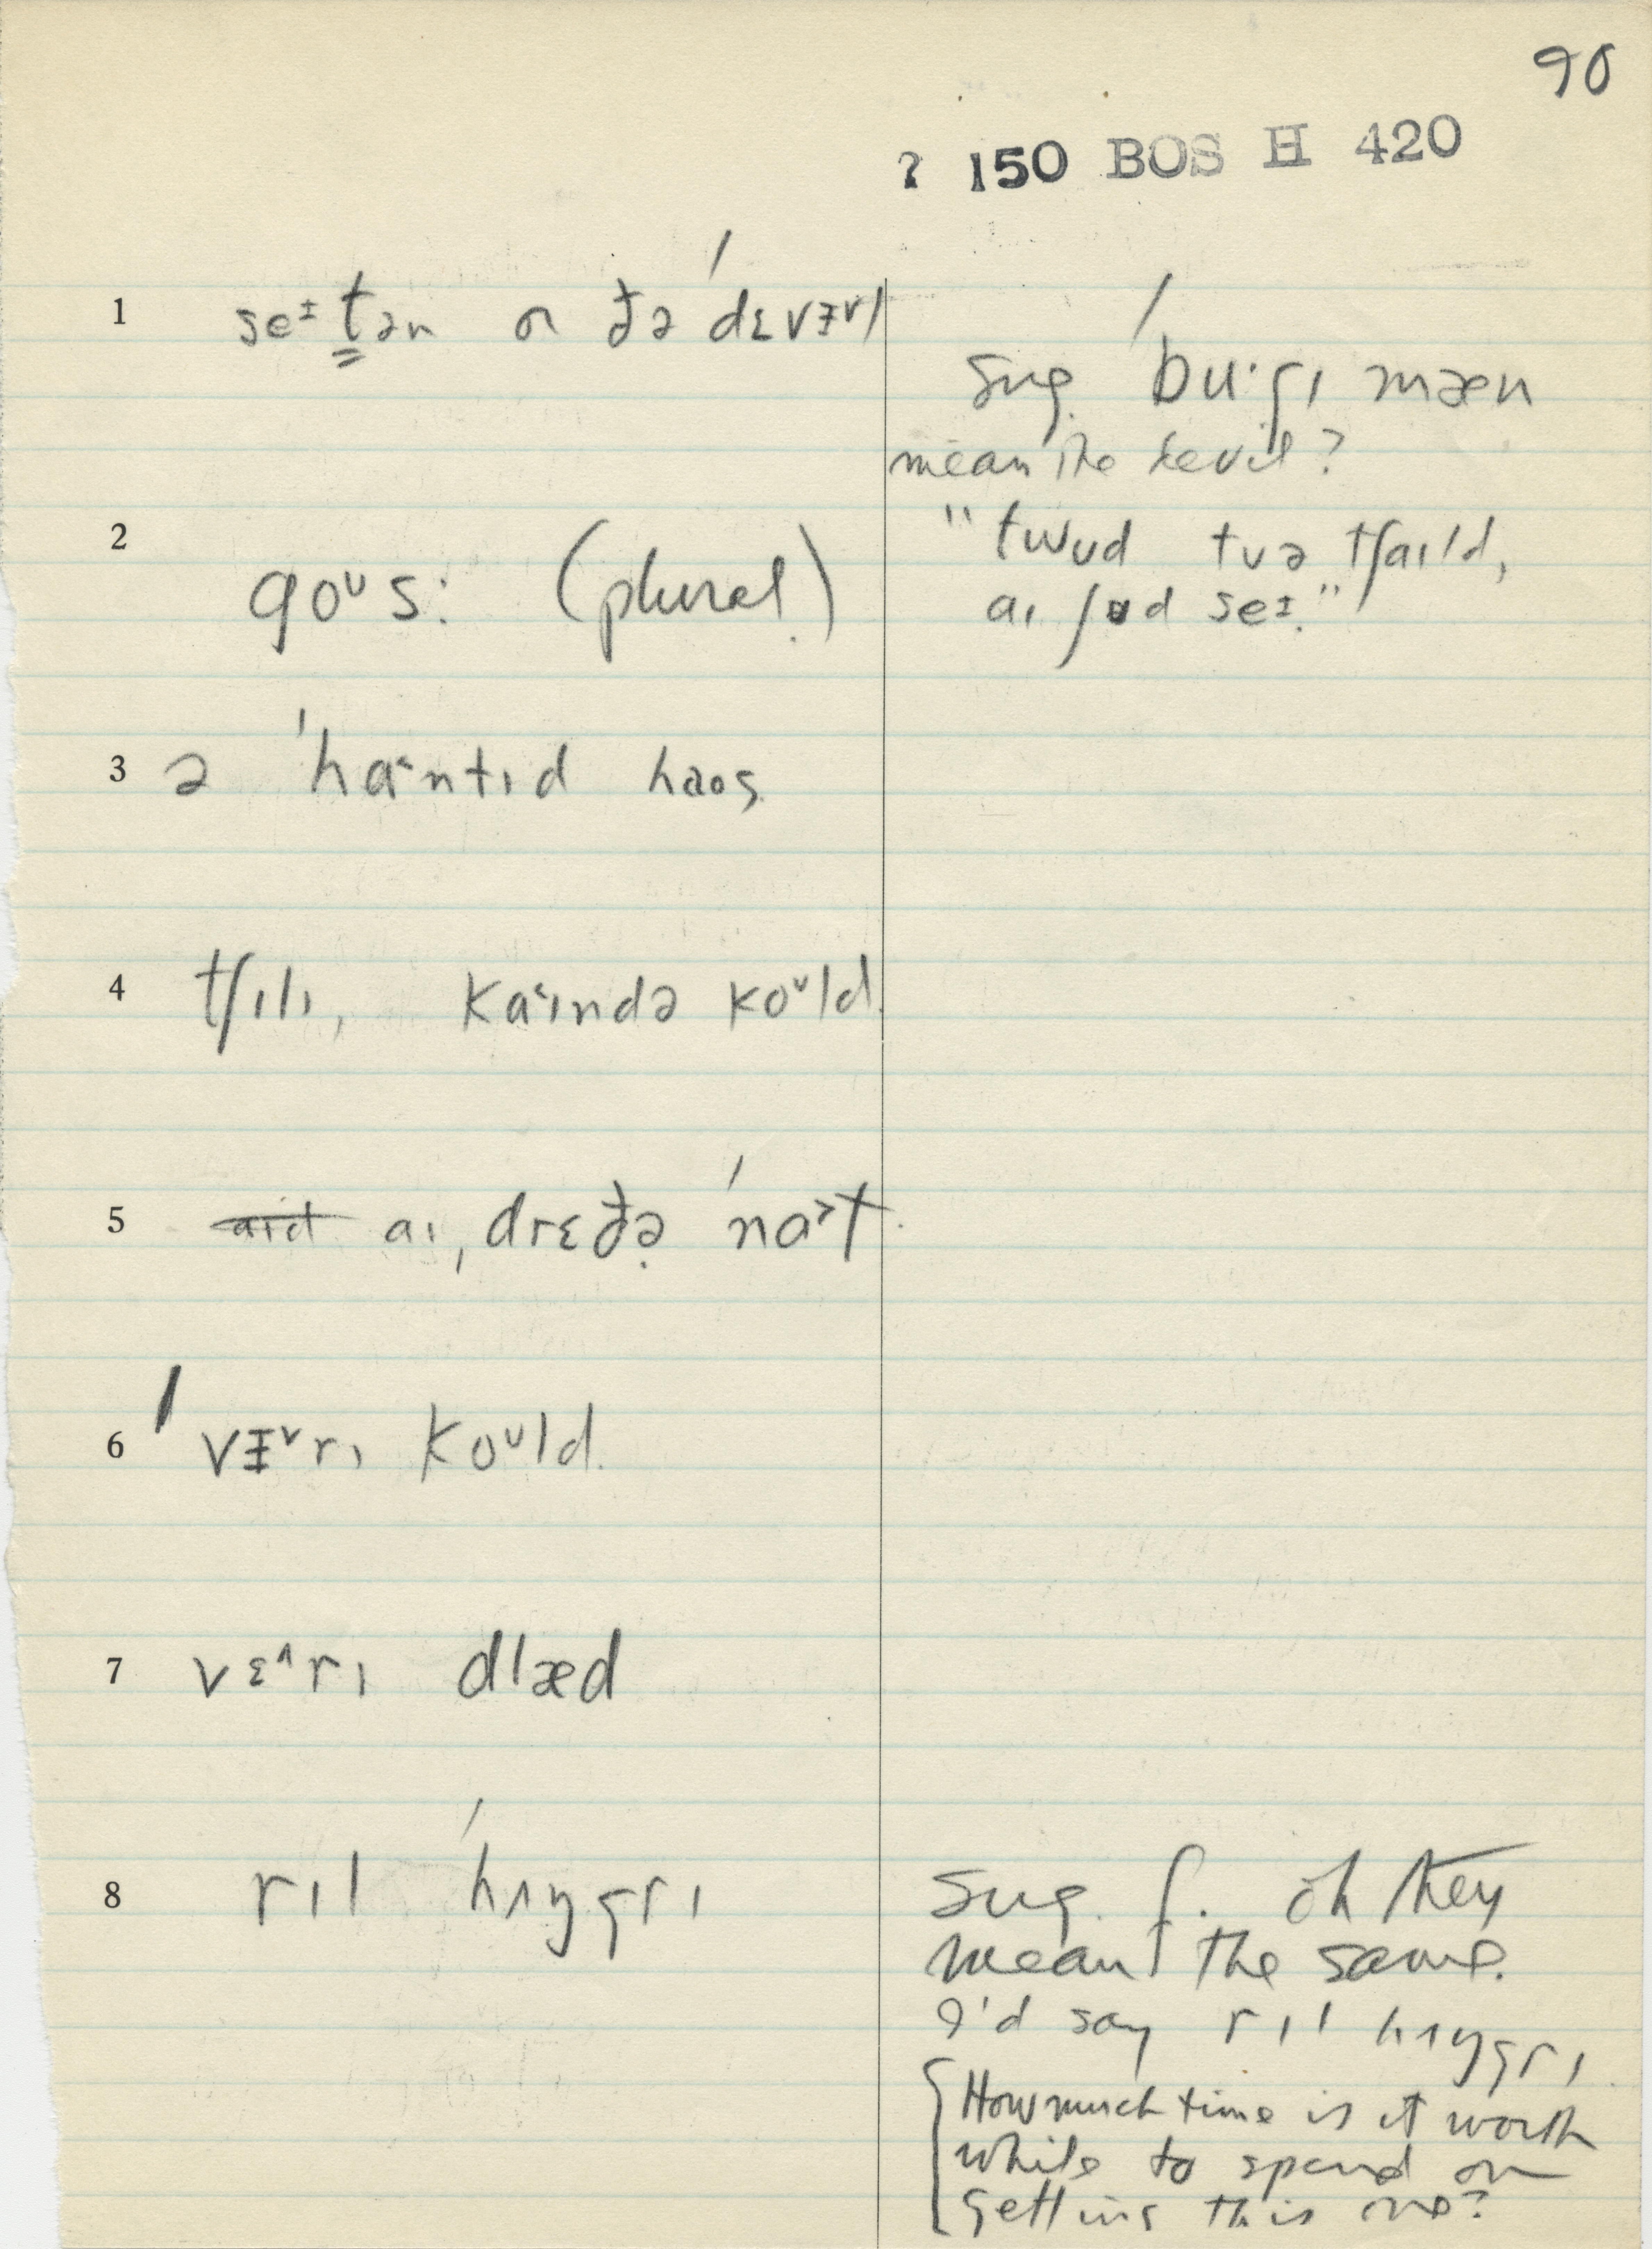 90
? 150 BOS H 420
1 seᶦtən or ðə ˈdɛvɪᵛl
Sug. ˈbu·gɪ mæn
mean the devil?
2 goᶷs: (plural)
"twʊd tʊə tʃaɪld,
aɪ ʃʊd seᶦ."
3 ə ˈha˂ntɪd haos
4 tʃɪlɪ, ka˂ɪndə koᶷld
5 aɪd aɪ ˌdrɛðə ˈna˃t
6 ˈvɪᵛrɪ koᶷld
7 vɛ^rɪ dlæd
8 rɪl ˈhʌŋgrɪ
Sug. f. oh they
mean the same.
I'd say rɪl hʌŋgrɪ
How much time is it worth
while to spend on
getting this one?